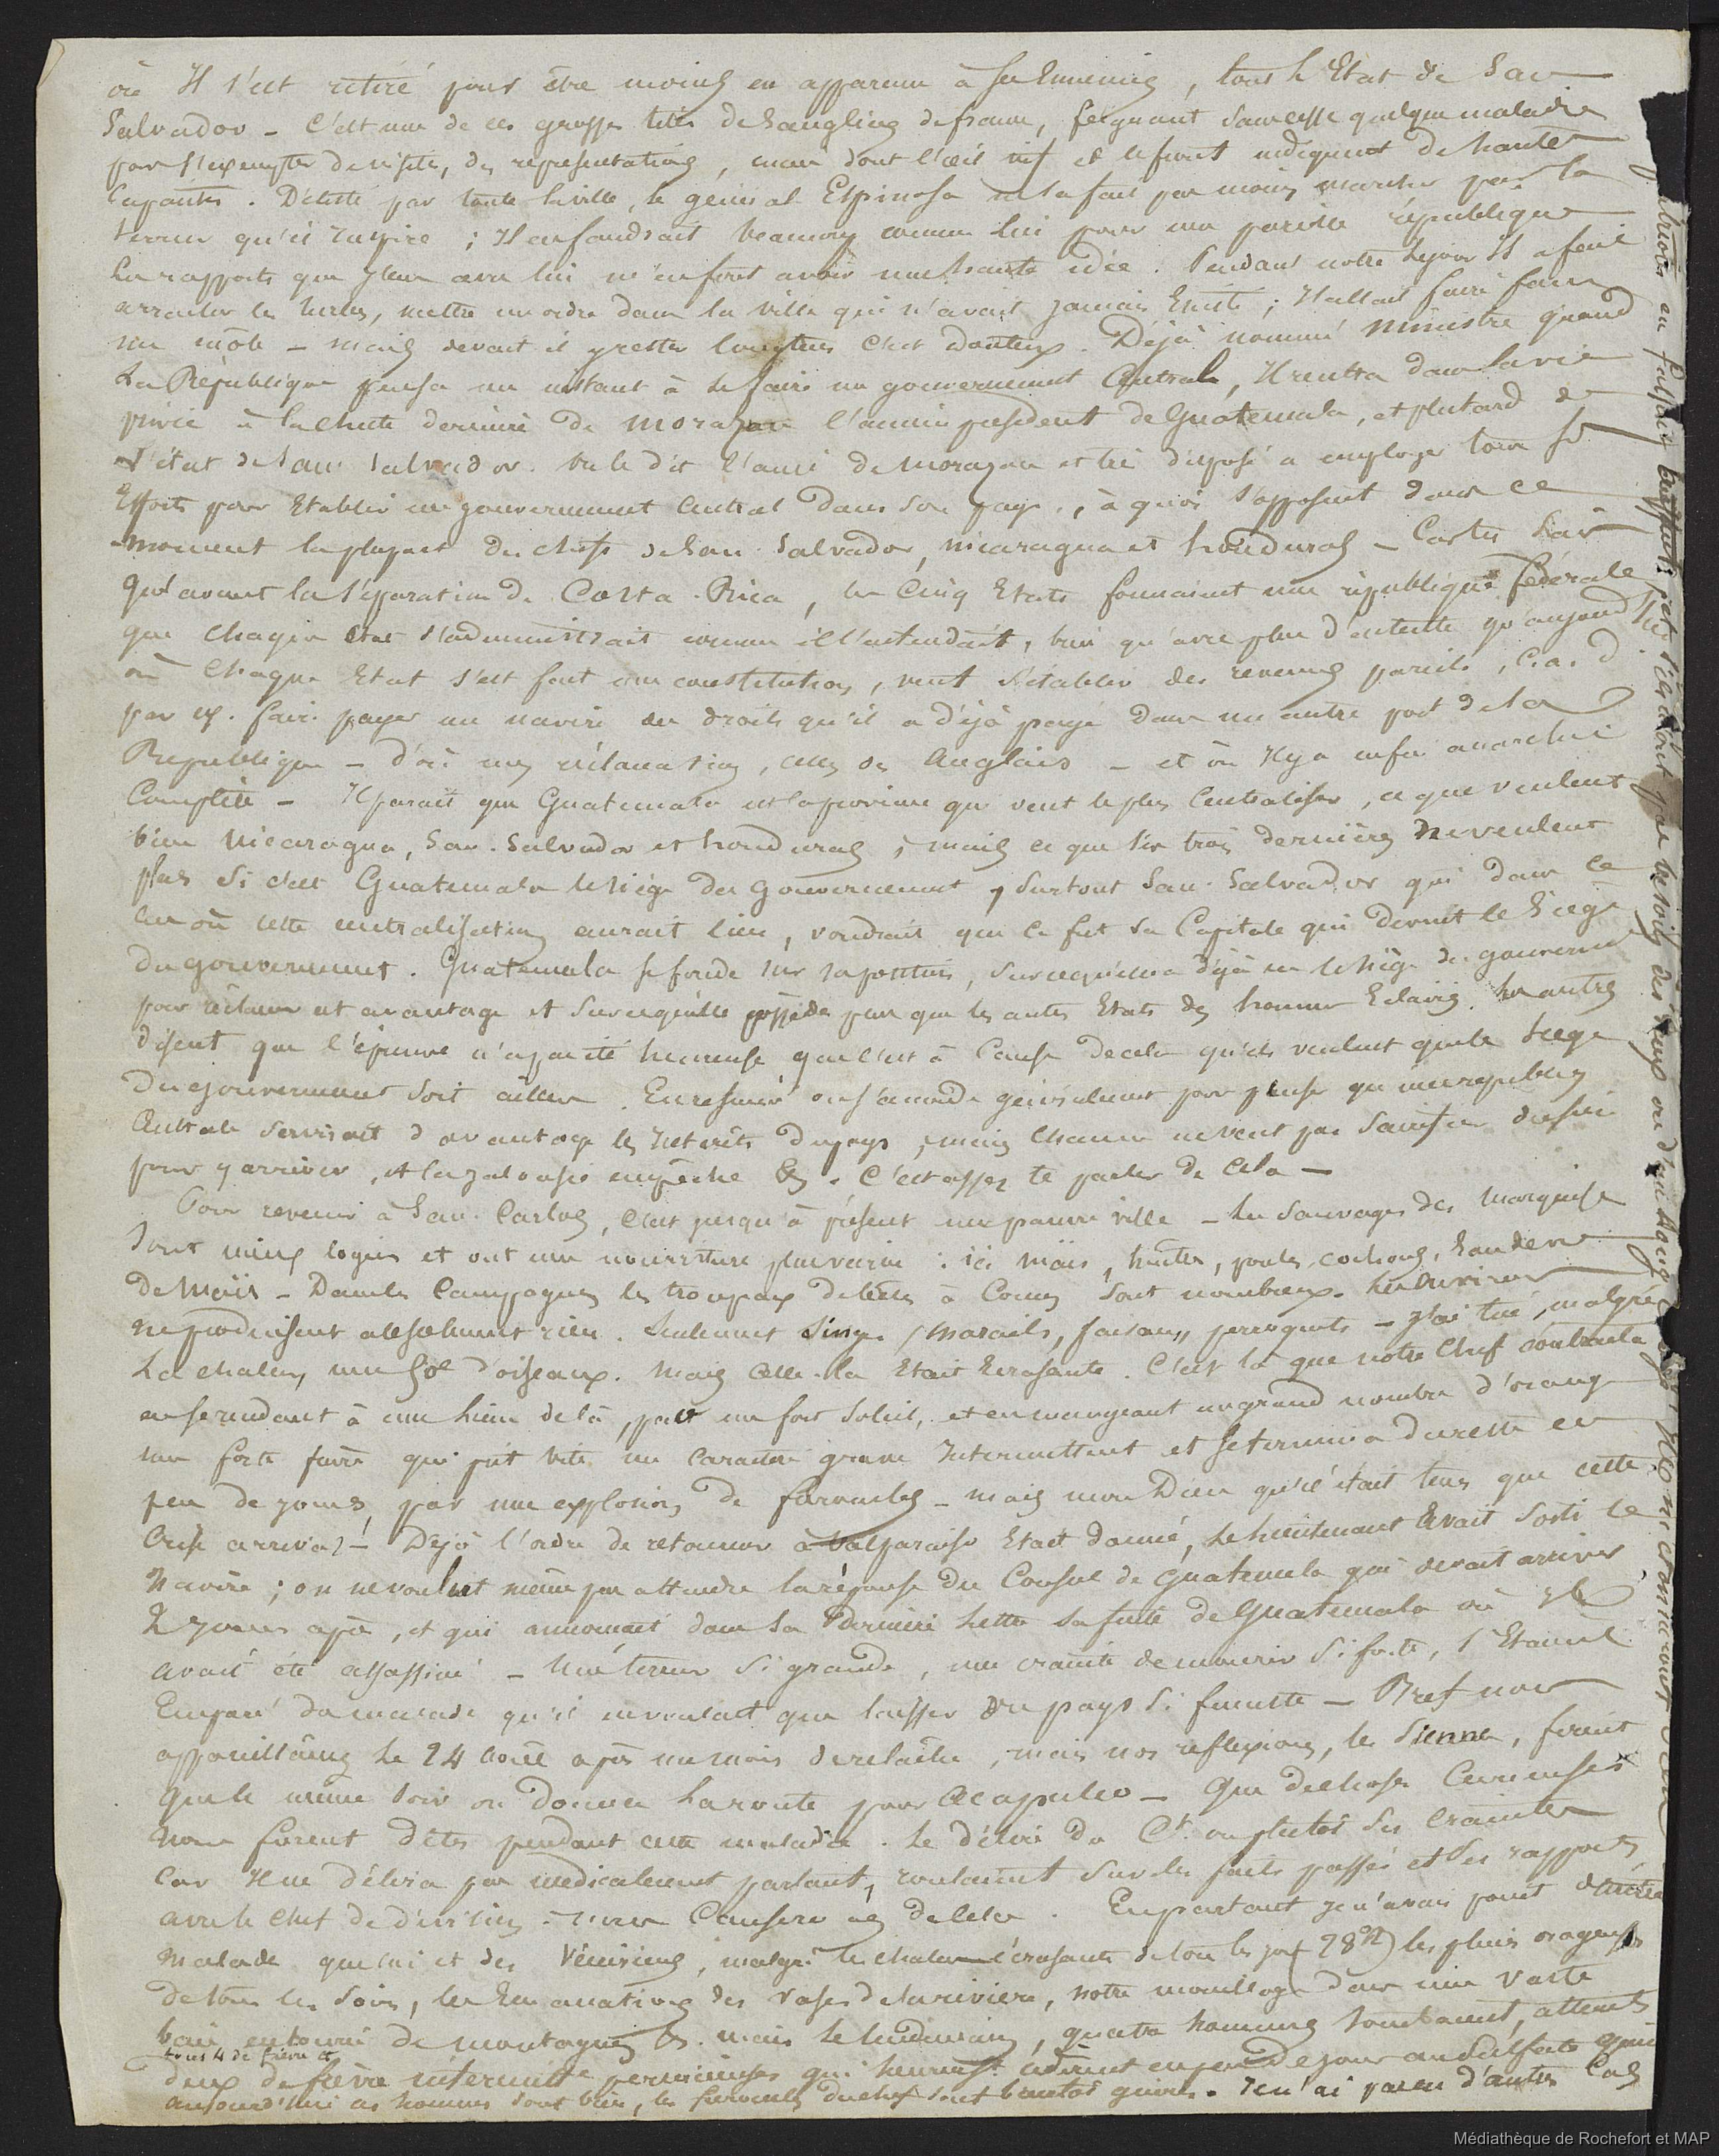 où Il s'est retiré pour être moins en apparence à ses Ennemis, tout l'Etat de San
Salvador - C'est une de ces grosses têtes de Sanglier de france, feignant sans cesse quelque maladie
pour s'exempter de visite, de représentations, mais dont l'œil vif et le front indiquent de hautes
Capacités. Détesté par toute la ville, le général Espinosa ne la fait pas moins marcher par la
terreur qu'il inspire ; Il en faudrait beaucoup comme lui pour une pareille république
Les rapports que j'eus avec lui m'en firent avoir une haute idée. Pendant notre séjour Il a fait
arracher les herbes, mettre un ordre dans la ville qui n'avait jamais Existé ; Il allait faire faire
un môle - mais devait il y rester longtems c'est douteux. Déjà nommé Ministre quand
La République pensa un instant à se faire un gouvernement Central, Il rentra dans la vie
privée à la chute dernière de Morazan l'ancien président de Guatemala, et plutard de
l'état de San Salvador. On le dit l'ami de Morazan et très disposé à employer tous ses
Efforts pour Etablir un gouvernement Central dans son pays, à quoi s'opposent dans ce
moment la plupart des chefs de San Salvador, Nicaragua et honduras -
Qu'avant la séparation de Costa-Rica, les Cinq Etats formaient une république fédérale
que chaque état s'administrait comme il l'entendait, bien qu'avec plus d'entente qu'aujourd'hui
où Chaque Etat s'est fait une constitution, veut s'établir des revenus pareils, c.a.d
par ex. faire payer un navire des droits qu'il a déjà payé dans un autre port de la
République - d'où mes réclamations, celles des Anglais - et où Il y a enfin anarchie
Complète - Il parait que Guatemala est la province qui veut le plus Centraliser, ce que veulent
bien Nicaragua, San-Salvador et honduras, mais ce que les trois dernières ne veulent
plus si c'est Guatemala le siège du gouvernement, surtout San-Salvador qui dans le
cas où cette centralisation aurait lieu, voudrait que ce fut sa Capitale qui devint le siège
du gouvernement. Guatemala se fonde sur sa position, sur ce qu'elle a déjà eu le siège du gouvernement
pour réclamer cet avantage et sur ce qu'elle possède plus que les autres Etats des hommes Eclairés. Les autres
disent que l'épreuve n'a pas été heureuse que c'est à Cause de cela qu'ils veulent que le siège
du gouvernement soit ailleurs. En résumé on s'accorde généralement pour penser qu'une république
Centrale servirait d'avantage les Intérêts du pays, mais chacun ne veut pas sacrifier du sien
pour y arriver, et la jalousie empêche &. C'est assez te parler de Cela -
Pour revenir à San-Carlos, c'est jusqu'à présent une pauvre ville - Les Sauvages des Marquises
sont mieux logés et ont une nourriture plus variée : ici maïs, huîtres, poules, cochons, Eau de vie
de Maïs - Dans les Campagnes les troupeaux de bêtes à Cornes sont nombreux. Les Environs
ne produisent absolument rien. Seulement Singes, faisans, perroquets - J'ai tué, malgré
La chaleur, une foe d'oiseaux. Mais celle-là Etait Ecrasante. C'est là que notre Chef contracta
en se rendant à une lieue de là, par un fort Soleil, et en mangeant un grand nombre d'oranges
une forte fièvre qui prit vite un caractère grave Intermittent et se termina du reste en
peu de jours, par une explosion de furoncles - mais mon Dieu qu'il était tems que cette
Crise arrivât - Déjà l'ordre de retourner à Valparaiso Etait donné, le lieutenant avait sorti le
Navire ; on ne voulut même pas attendre la réponse du Consul de Guatemala qui devait arriver
2 jours après, et qui annonçait dans sa dernière lettre sa fuite de Guatemala où Il
avait été assassiné - Une terreur si grande, une crainte de mourir si forte, s'étaient
Emparé du malade qu'il ne voulait que laisser ce pays si funeste - Bref nous
appareillâmes le 24 août après un mois de relâche, mais nos réflexions, les siennes, firent
que le même soir on donna la route pour Acapulco - Que de choses Curieuses
nous furent dites pendant cette maladie. Le délire du Ct. ou plutôt ses craintes
car Il ne délira pas médicalement parlant, roulaient sur les faits passés et ses rapports
avec le Chef de division - nous Causerons de Cela. En partant je n'avais point d'autres
Malades que lui et des Vénériens, malgré les chaleurs écrasantes de tous les jours (28°) les pluies orageuses
de tous les Soirs, les Emanations des vases de la rivière, notre mouillage dans une vaste
baie entourée de montagnes &. mais le lendemain, quatre hommes tombèrent, atteints
tous 4 de fièvre et
deux de fièvre intermitte pernicieuses qui heureust cédèrent en peu de jours au Sulfate quine
aujourd'hui ces hommes sont bien, les furoncles du chef sont bientôt guéris. Je n'ai pas eu d'autres Cas